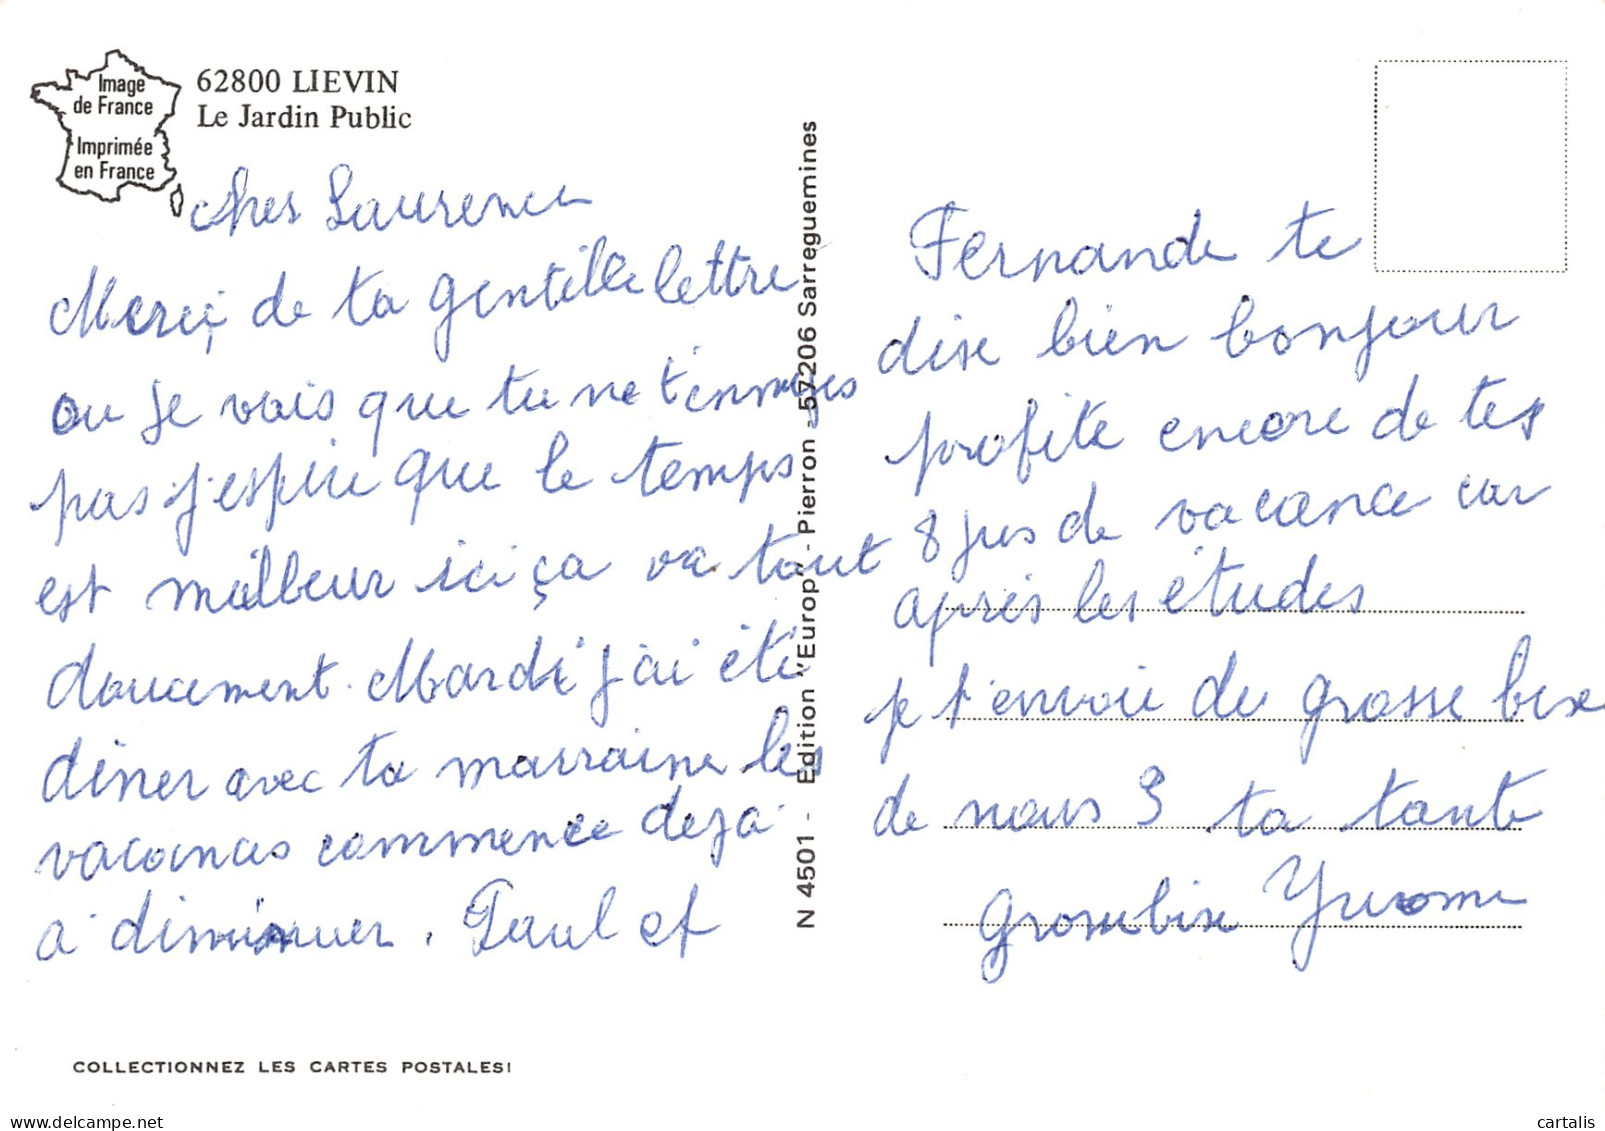 Image
de France
Imprimée
en France
62800 LIEVIN
Le Jardin Public
cher Laurence
Merci de ta gentille lettre
ou je vois que tu ne t'ennuyes
pas j'espère que le temps
est meilleur ici ça va tout
doucement. Mardi j'ai été
diner avec ta marraine les
vacances commence deja
a diminuer. Paul et
N 4501 - Edition "Europ" - Pierron - 57206 Sarreguemines
Fernande te
dise bien bonjour
profite encore de tes
8 jrs de vacance car
après les études
je t'envoie de grosse bise
de nous 3 ta tante
grosse bise Yvonne
COLLECTIONNEZ LES CARTES POSTALES!
cartalis
delcampe.net